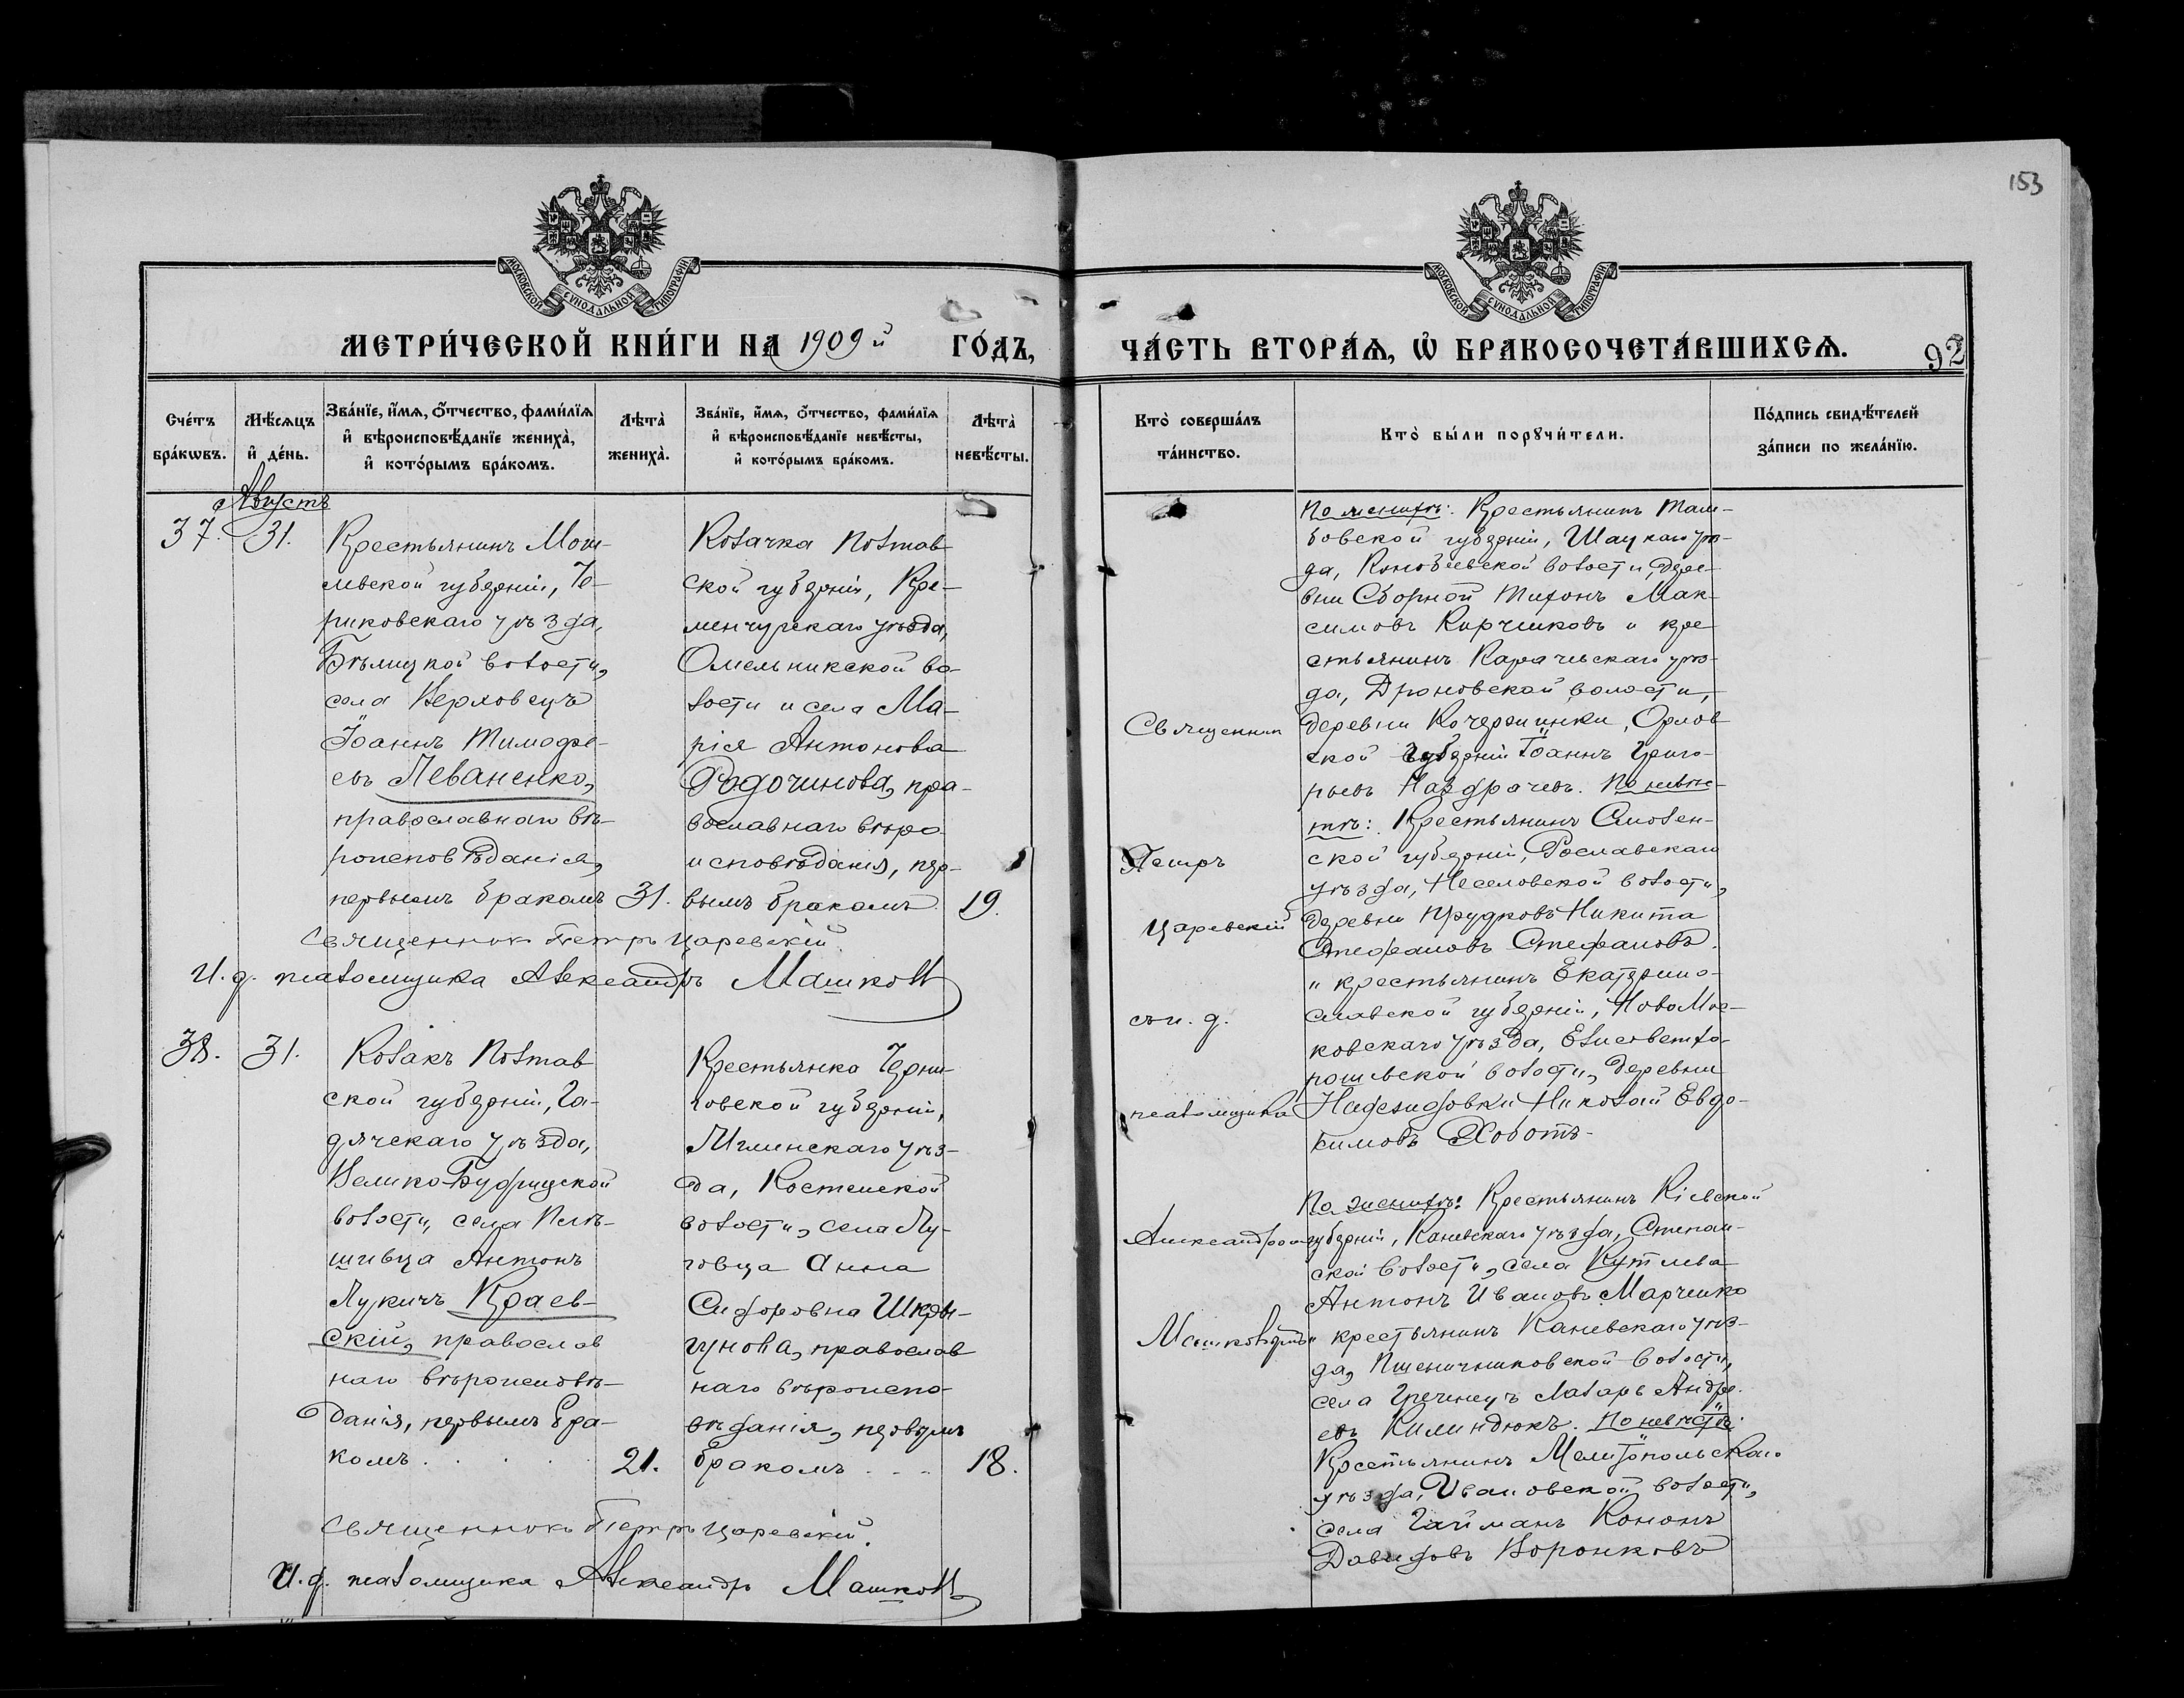 153
МОСКОВСКОЙ СѴНОДАЛЬНОЙ ТИПОГРАФІИ
МЕТРИ́ЧЕСКОЙ КНИ́ГИ НА 1909й ГО́ДЪ,
Сче́тъ бра́кѡвъ.
Мѣ́сѧцъ и҆ де́нь.
Зва́нїе, и҆́мѧ, ѻ҆́тчество, фами́лїѧ и҆ вѣроисповѣ́данїе жениха̀, и҆ кото́рымъ бра́комъ.
Лѣта̀ жениха̀.
Зва́нїе, и҆́мѧ, ѻ҆́тчество, фами́лїѧ и҆ вѣроисповѣ́данїе невѣ́сты, и҆ кото́рымъ бра́комъ.
Лѣта̀ невѣ́сты.
Августъ
37. 31.
Крестьянинъ Мог-
илевской губерніи, Че-
риковскаго уѣзда,
Бѣлицкой волости,
села Верховецъ
Іоаннъ Тимофе-
евъ Леваненко,
православнаго вѣ-
роисповѣданія,
первымъ бракомъ 31.
Козачка Полтав
ской губерніи, Кре-
менчугскаго уѣзда,
Омельникской во-
лости и села Ма-
рія Антонова
Родочинова, пра-
вославнаго вѣро
исповѣданія, пер-
вымъ бракомъ 19.
Священникъ Петръ Царевскій.
И. д. псаломщика Александръ Машковъ
38. 31.
Козакъ Полтав
ской губерніи, Га-
дячскаго уѣзда,
Велико-Будищской
волости, села
Антонъ
Лукичъ Краев-
скій, православ
наго вѣроисповѣ-
данія, первымъ бра-
комъ . . . . . 21.
Крестьянка Черни-
говской губерніи,
Мглинскаго уѣз-
да, Костенской
волости, села Лу-
говца Анна
Сидоровна Шкры-
гунова, православ
наго вѣроиспо-
вѣданія, первымъ
бракомъ . . . 18.
Священникъ Петръ Царевскій.
И. д. псаломщика Александръ Машковъ
МОСКОВСКОЙ СѴНОДАЛЬНОЙ ТИПОГРАФІИ
ЧА́СТЬ ВТОРА́Ѧ, Ѡ҆ БРАКОСОЧЕТА́ВШИХСѦ. 92
Кто̀ соверша́лъ та́инство.
Кто̀ бы́ли порꙋчи́тели.
По́дпись свидѣ́телей за́писи по жела́нїю.
Священник
Петръ
Царевскій
съ и. д.
псаломщика
Александромъ
Машковымъ
По женихѣ: Крестьянинъ Там-
бовской губерніи, Шацкаго уѣз-
да, Конобѣевской волости, дере-
вни Сборной Тихонъ Мак-
симовъ Кирчиковъ и кре
стьянинъ Карачевскаго уѣз-
да, Дроновской волости,
деревни Кочержинки, Орлов
ской губерніи Іоаннъ Григо-
рьевъ Наздрачевъ. По невѣс-
тѣ: Крестьянинъ Смолен-
ской губерніи, Рославскаго
уѣзда, Неселовской волости,
деревни Прудковъ Никита
Стефановъ Стефановъ.
и крестьянинъ Екатерино-
славской губерніи, НовоМос-
ковскаго уѣзда, Елисоветхо-
рошевской волости, деревни
Надеждовки Николай Евдо-
кимовъ Хоботъ-
По женихѣ: Крестьянинъ Кіевской
губерніи, Каневскаго уѣзда, Степан-
ской волости, села Кутлева
Антонъ Ивановъ Марченко
и крестьянинъ Каневскаго уѣз-
да, Пшеничниковской волости,
села Гречинецъ Лазарь Андре-
евъ Килиндюкъ. По невѣстѣ:
Крестьянинъ Мелитопольскаго
уѣзда, Ивановской волости,
села Гайманъ Кононъ
Давидовъ Воронковъ